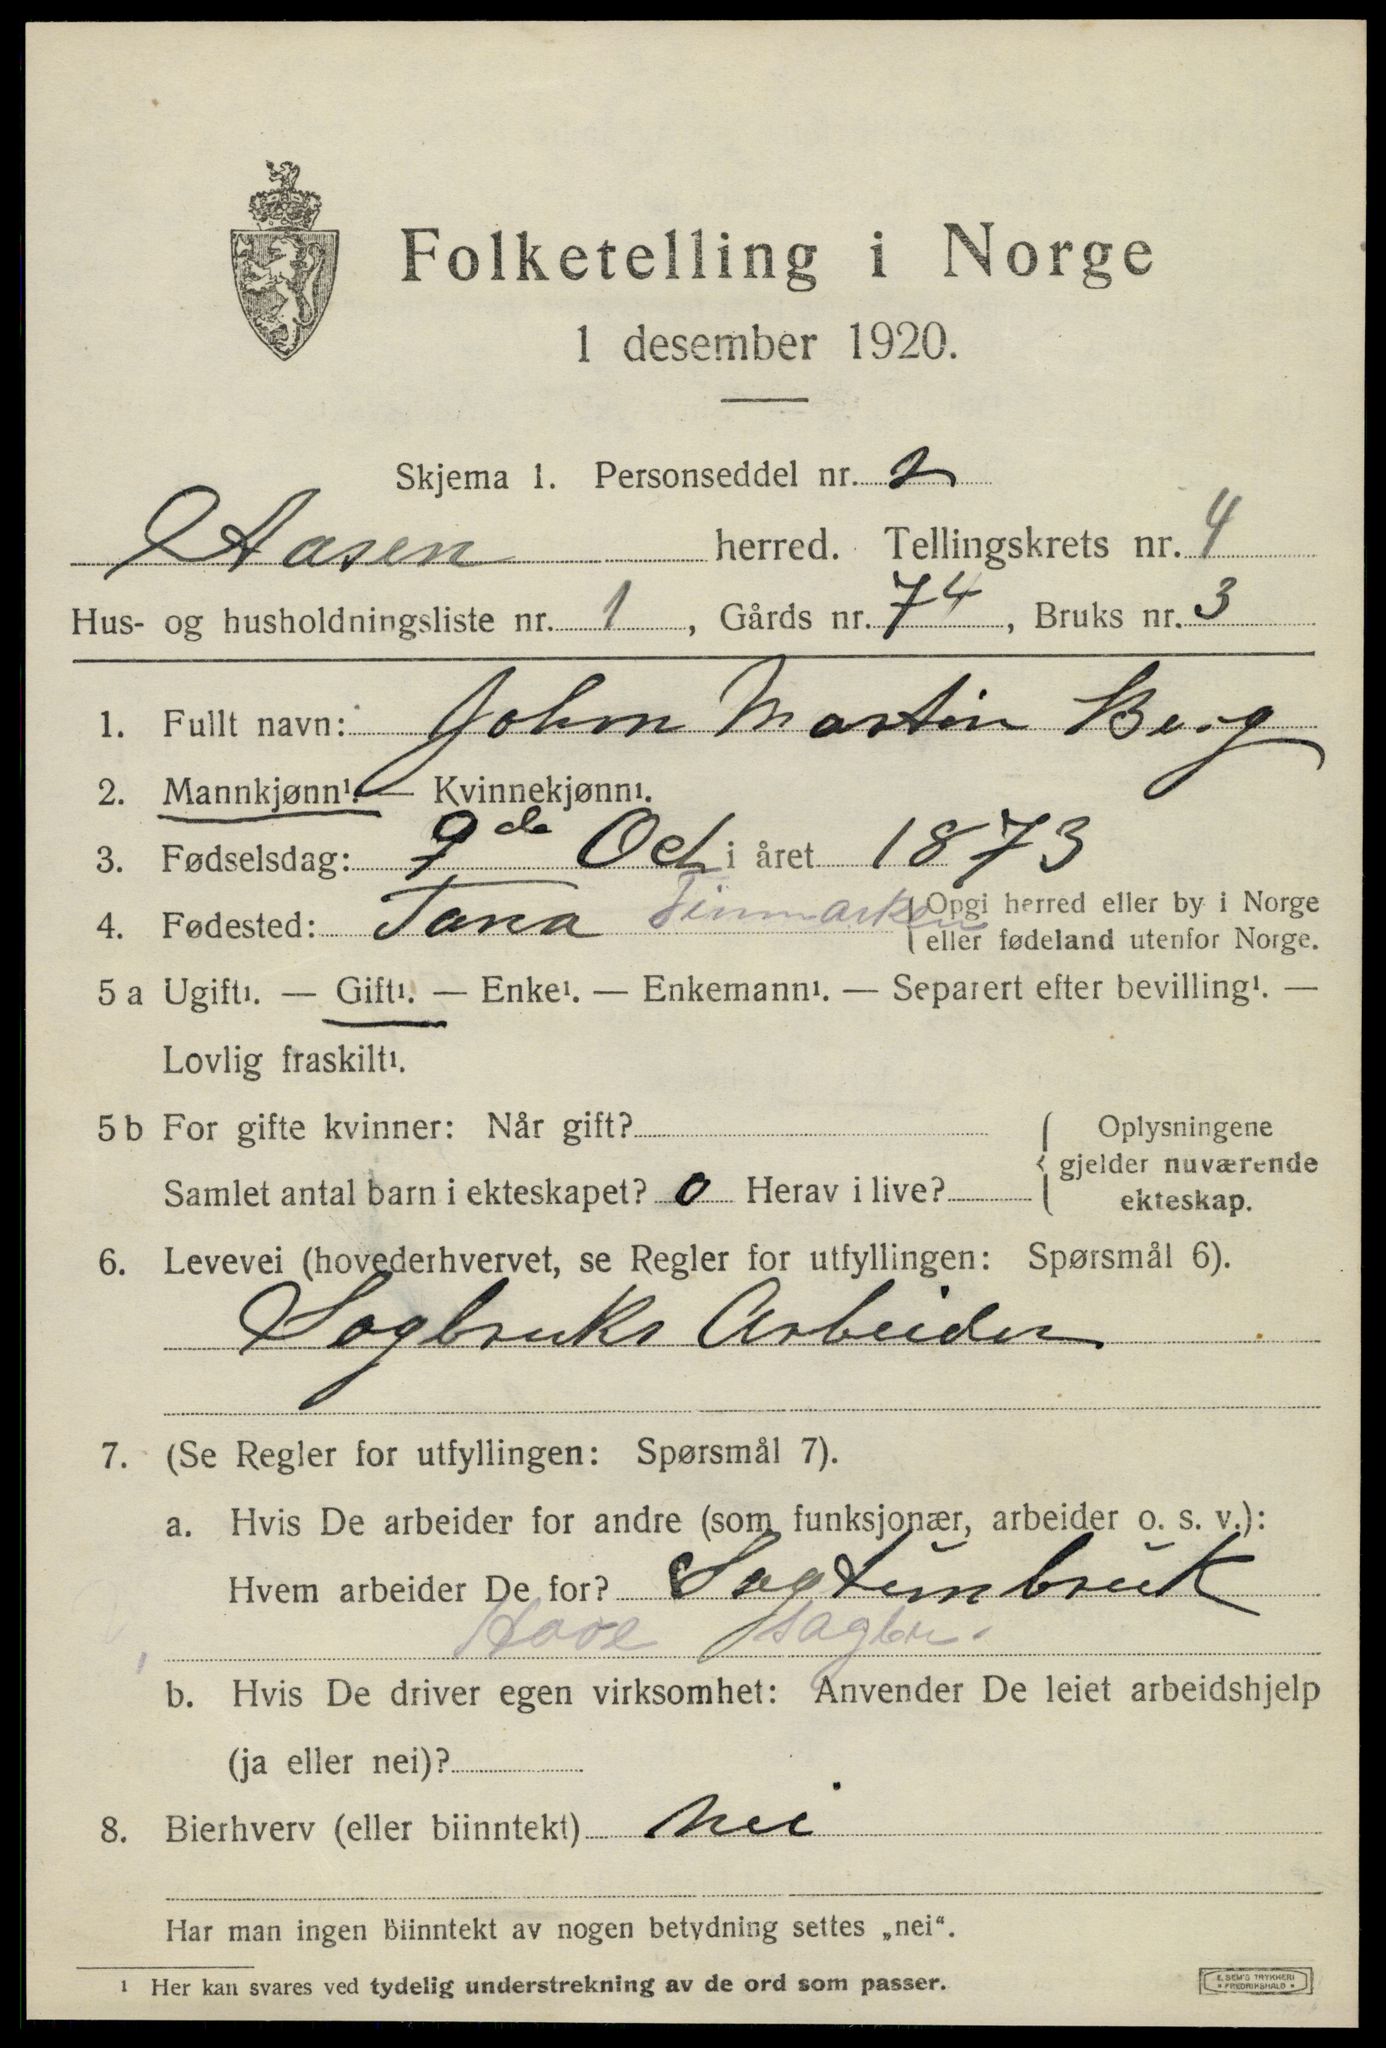 Folketelling i Norge
1 desember 1920.
Skjema 1. Personseddel nr. 2
Aasen herred. Tellingskrets nr. 4
Hus- og husholdningsliste nr. 1, Gårds nr. 74, Bruks nr. 3
1. Fullt navn: Johan Martin Berg
2. Mannkjønn¹. — Kvinnekjønn¹.
3. Fødselsdag: 9de Oct i året 1873
4. Fødested: Tana Finmarken { Opgi herred eller by i Norge
eller fødeland utenfor Norge.
5 a Ugift¹. — Gift¹. — Enke¹. — Enkemann¹. — Separert efter bevilling¹. —
Lovlig fraskilt¹.
5 b For gifte kvinner: Når gift?
Samlet antal barn i ekteskapet? 0 Herav i live?
{ Oplysningene
gjelder nuværende
ekteskap.
6. Levevei (hovederhvervet, se Regler for utfyllingen: Spørsmål 6).
Sagbruks Arbeider
7. (Se Regler for utfyllingen: Spørsmål 7).
a. Hvis De arbeider for andre (som funksjonær, arbeider o. s. v.):
Hvem arbeider De for? Sagtumbruk
sagbr.
b. Hvis De driver egen virksomhet: Anvender De leiet arbeidshjelp
(ja eller nei)?
8. Bierhverv (eller biinntekt) nei
Har man ingen biinntekt av nogen betydning settes „nei“.
¹ Her kan svares ved tydelig understrekning av de ord som passer.
E. SEM'S TRYKKERI
• FREDRIKSHALD •